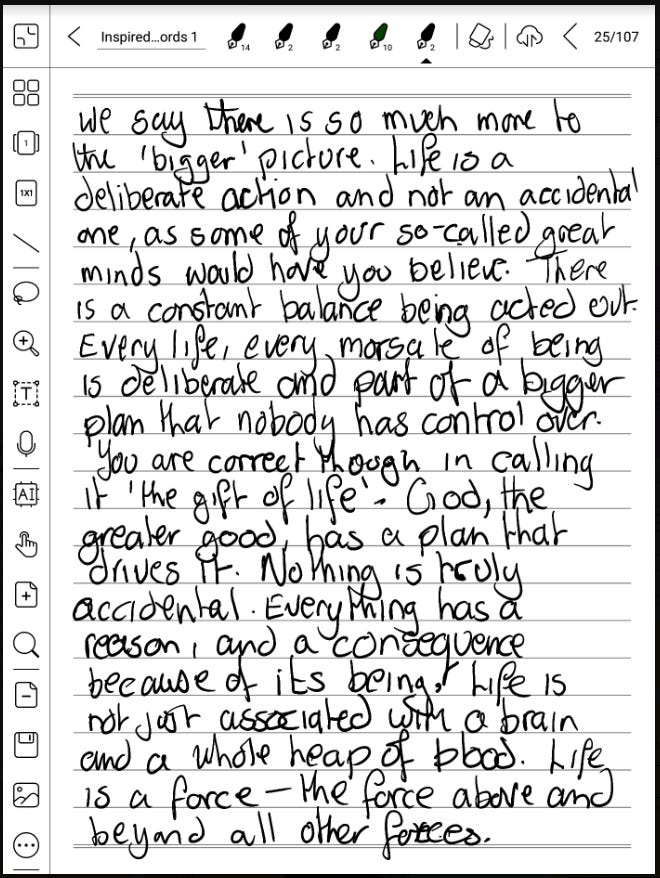 Inspired...ords 1
14
2
2
10
2
25/107
1
1X1
T
AI
We say there is so much more to
the 'bigger' picture. Life is a
deliberate action and not an accidental
one, as some of your so-called great
minds would have you believe. There
is a constant balance being acted out.
Every life, every morsale of being
is deliberate and part of a bigger
plan that nobody has control over.
You are correct though in calling
it 'the gift of life'. God, the
greater good, has a plan that
drives it. Nothing is truly
accidental. Everything has a
reason, and a consequence
because of its being. Life is
not just associated with a brain
and a whole heap of blood. Life
is a force – the force above and
beyond all other forces.